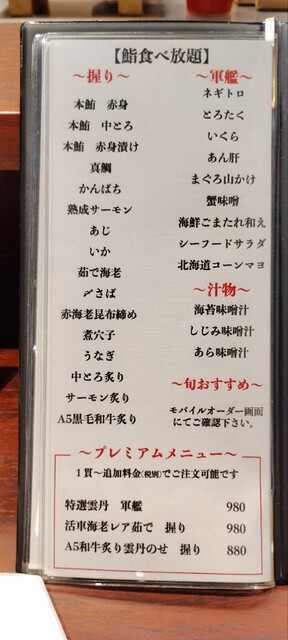 【鮨食べ放題】
〜握り〜
本鮪　赤身
本鮪　中とろ
本鮪　赤身漬け
真鯛
かんぱち
熟成サーモン
あじ
いか
茹で海老
〆さば
赤海老昆布締め
煮穴子
うなぎ
中とろ炙り
サーモン炙り
A5黒毛和牛炙り
〜軍艦〜
ネギトロ
とろたく
いくら
あん肝
まぐろ山かけ
蟹味噌
海鮮ごまたれ和え
シーフードサラダ
北海道コーンマヨ
〜汁物〜
海苔味噌汁
しじみ味噌汁
あら味噌汁
〜旬おすすめ〜
モバイルオーダー画面
にてご確認下さい。
〜プレミアムメニュー〜
１貫〜追加料金(税別)でご注文可能です
特選雲丹　軍艦　980
活車海老レア茹で　握り　980
A5和牛炙り雲丹のせ　握り　880